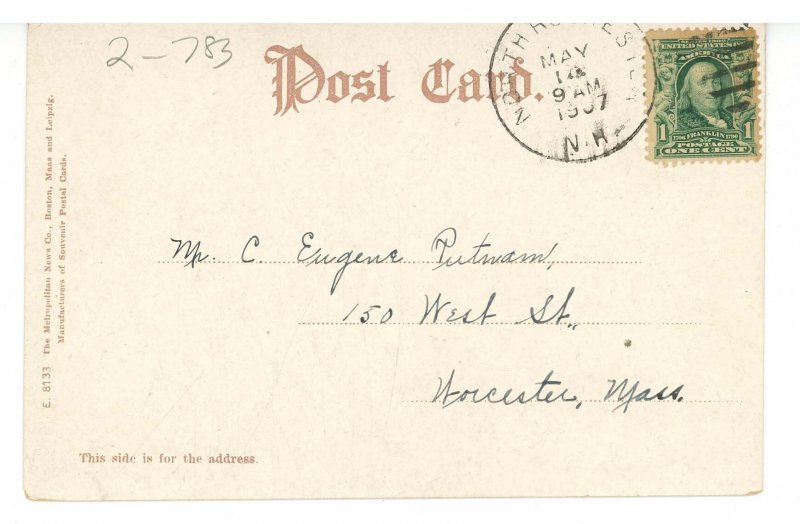 2-783
Post Card.
NORTH ROCHESTER
MAY
14
9 AM
1907
N.H.
SERIES 1902
UNITED STATES OF
AMERICA
1 1706 FRANKLIN 1790 1
POSTAGE
ONE CENT
E. 8133 The Metropolitan News Co., Boston, Mass and Leipzig.
Manufacturers of Souvenir Postal Cards.
Mr. C. Eugene Putnam,
150 West St.,
Worcester, Mass.
This side is for the address.